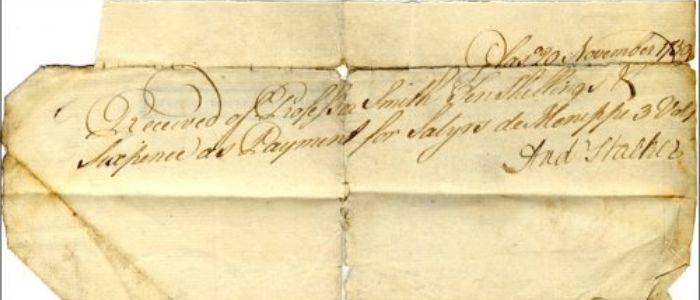 Glas: 20 November
Received of Professor Smith Ten Shillings &
Sixpence as Payment for Satyrs de Menippe 3 Vol
And Stalker